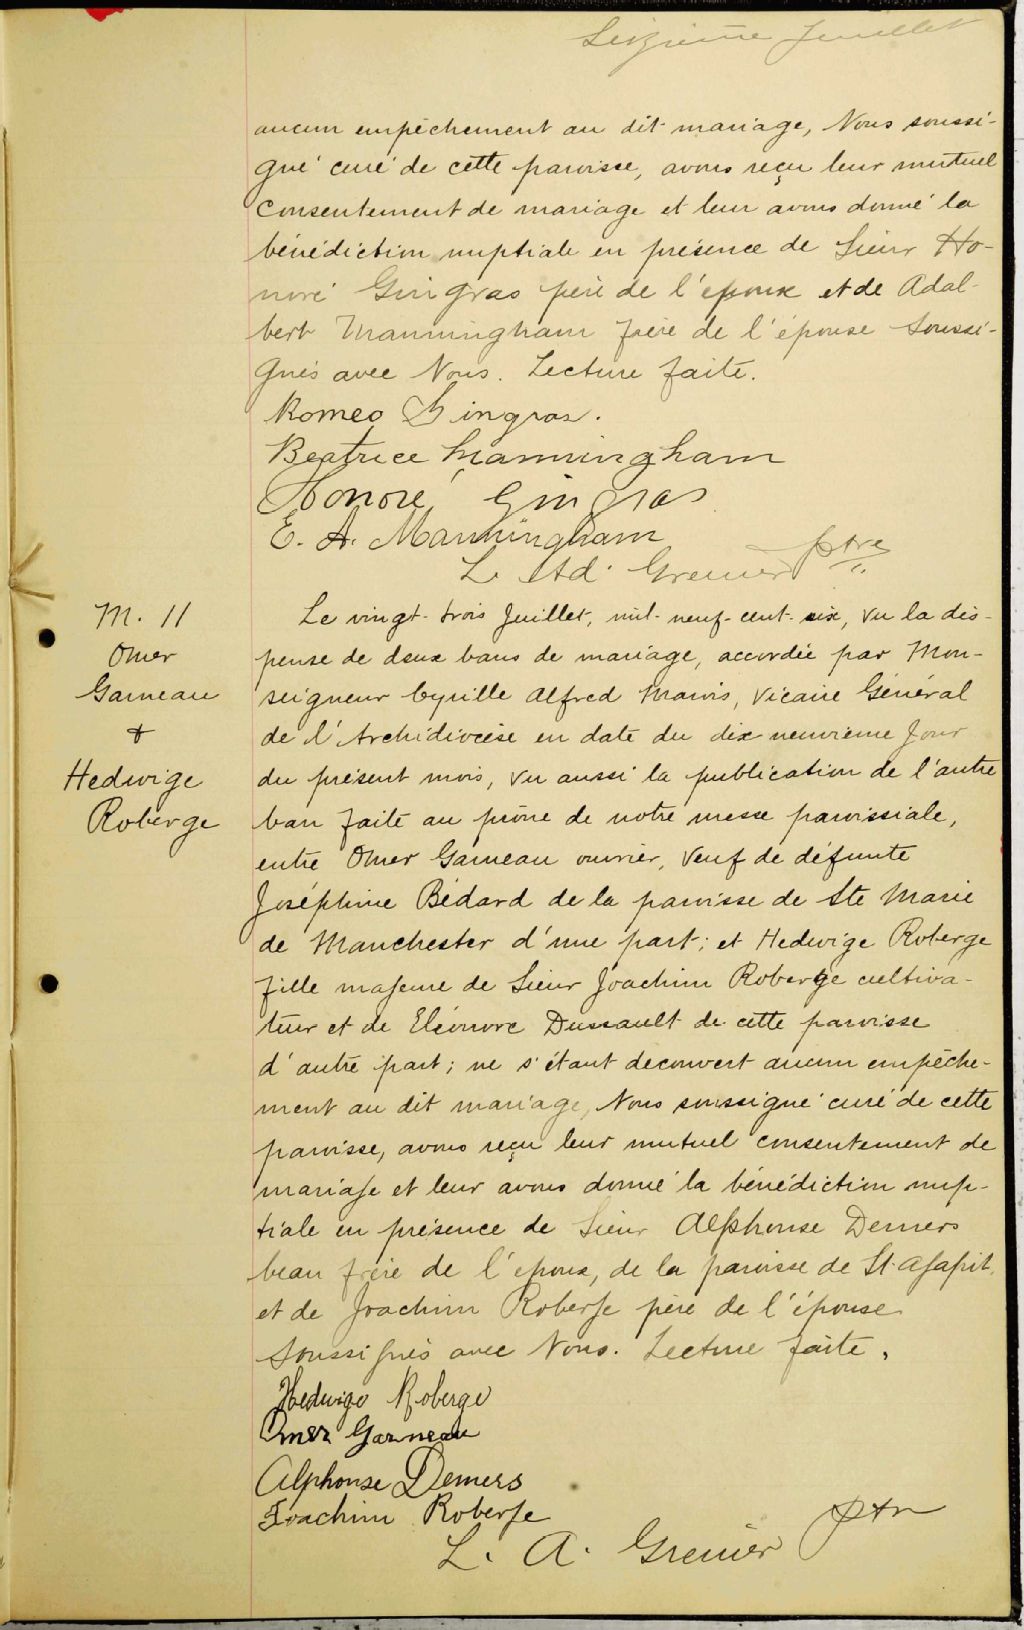 Seizième feuillet
aucun empêchement au dit mariage, Nous soussi-
gné curé de cette paroisse, avons reçu leur mutuel
consentement de mariage et leur avons donné la
bénédiction nuptiale en présence de Sieur Ho-
noré Gingras père de l'époux et de Adal-
bert Manningham frère de l'épouse soussi-
gnés avec Nous. Lecture faite.
Romeo Gingras.
Beatrice Manningham
Honoré Gingras
E. A. Manningham
L. Ad. Grenier ptre
M. 11
Omer
Garneau
+
Hedwige
Roberge
Le vingt-trois Juillet, mil-neuf-cent-six, vu la dis-
pense de deux bans de mariage, accordée par Mon-
seigneur Cyrille Alfred Marois, Vicaire Général
de l'Archidiocèse en date du dix neuvième jour
du présent mois, vu aussi la publication de l'autre
ban faite au prône de notre messe paroissiale,
entre Omer Garneau ouvrier, veuf de défunte
Joséphine Bédard de la paroisse de Ste Marie
de Manchester d'une part; et Hedwige Roberge
fille majeure de Sieur Joachim Roberge cultiva-
teur et de Eléonore Dussault de cette paroisse
d'autre part; ne s'étant découvert aucun empêche-
ment au dit mariage, Nous soussigné curé de cette
paroisse, avons reçu leur mutuel consentement de
mariage et leur avons donné la bénédiction nup-
tiale en présence de Sieur Alphonse Demers
beau frère de l'époux, de la paroisse de St. Agapit,
et de Joachim Roberge père de l'épouse
soussignés avec Nous. Lecture faite.
Hedwige Roberge
Omer Garneau
Alphonse Demers
Joachim Roberge
L. A. Grenier ptre